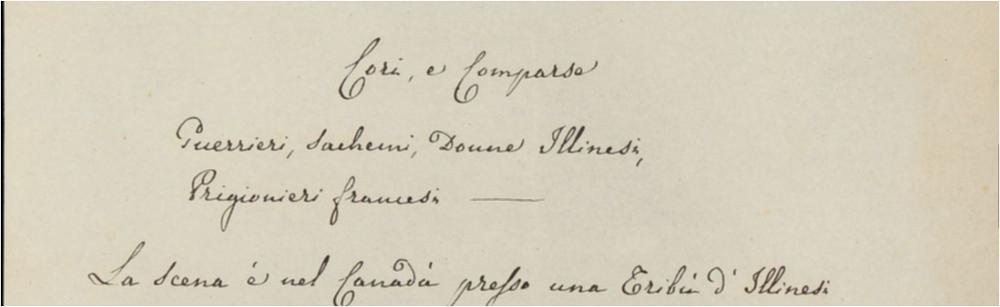 Cori, e Comparse
Guerrieri, Sachemi, Donne Illinesi,
Prigionieri francesi —
La scena è nel Canadà presso una Tribù d' Illinesi